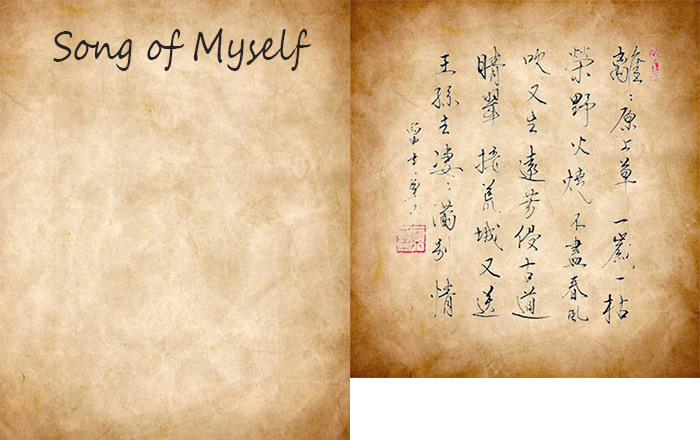 Song of Myself
離〻原上草一歲一枯
榮野火燒不盡春風
吹又生遠芳侵古道
晴翠接荒城又送
王孫去凄〻滿別情